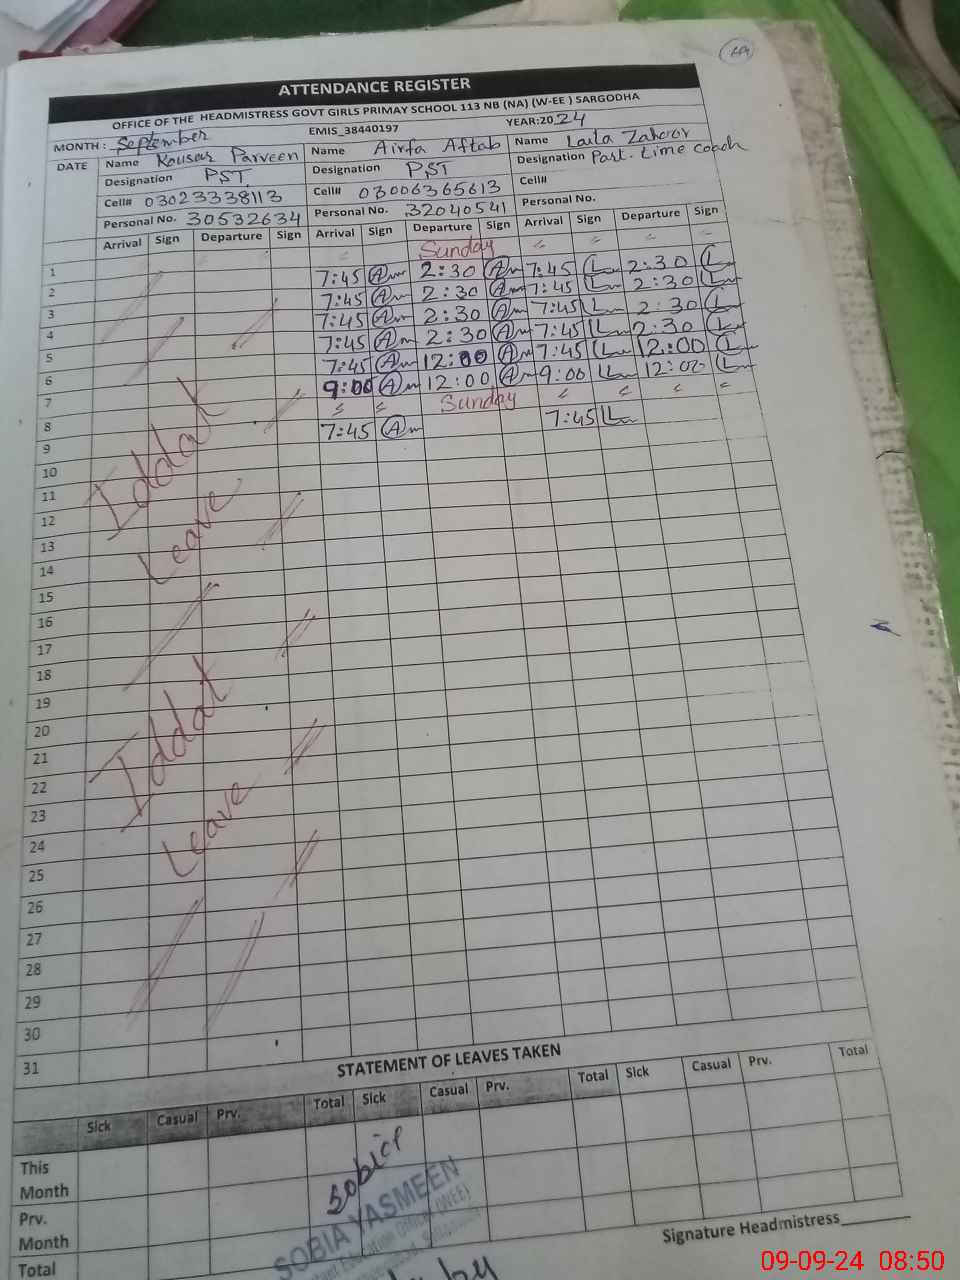 ATTENDANCE REGISTER
OFFICE OF THE HEADMISTRESS GOVT GIRLS PRIMAY SCHOOL 113 NB (NA) (W-EE ) SARGODHA
MONTH : September EMIS_38440197 YEAR:2024
DATE Name Kousar Parveen Name Airfa Aftab Name Laila Zahoor
Designation PST Designation PST Designation Part. time coach
Cell# 03023338113 Cell# 03006365613 Cell#
Personal No. 30532634 Personal No. 32040541 Personal No.
Arrival Sign Departure Sign Arrival Sign Departure Sign Arrival Sign Departure Sign
1 Sunday
2 7:45 2:30 7:45 2:30
3 7:45 2:30 7:45 2:30
4 7:45 2:30 7:45 2:30
5 7:45 2:30 7:45 2:30
6 7:45 12:00 7:45 12:00
7 9:00 12:00 9:00 12:00
8 Sunday
9 7:45 7:45
10
11
12
13
14
15
16
17
18
19
20
21
22
23
24
25
26
27
28
29
30
31
Iddat
Leave
Iddat
Leave
STATEMENT OF LEAVES TAKEN
Sick Casual Prv. Total Sick Casual Prv. Total Sick Casual Prv. Total
This
Month
Prv.
Month
Total
SOBIA YASMEEN
Signature Headmistress
by
09-09-24 08:50